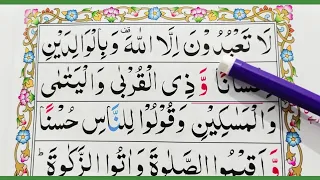 لَا تَعْبُدُوْنَ اِلَّا اللّٰهَ ۫ وَبِالْوَالِدَيْنِ
وَّ ذِي الْقُرْبٰى وَالْيَتٰمٰى
وَالْمَسٰكِيْنِ وَقُوْلُوْا لِلنَّاسِ حُسْنًا
وَّ اَقِيْمُوا الصَّلٰوةَ وَاٰتُوا الزَّكٰوةَ ؕ